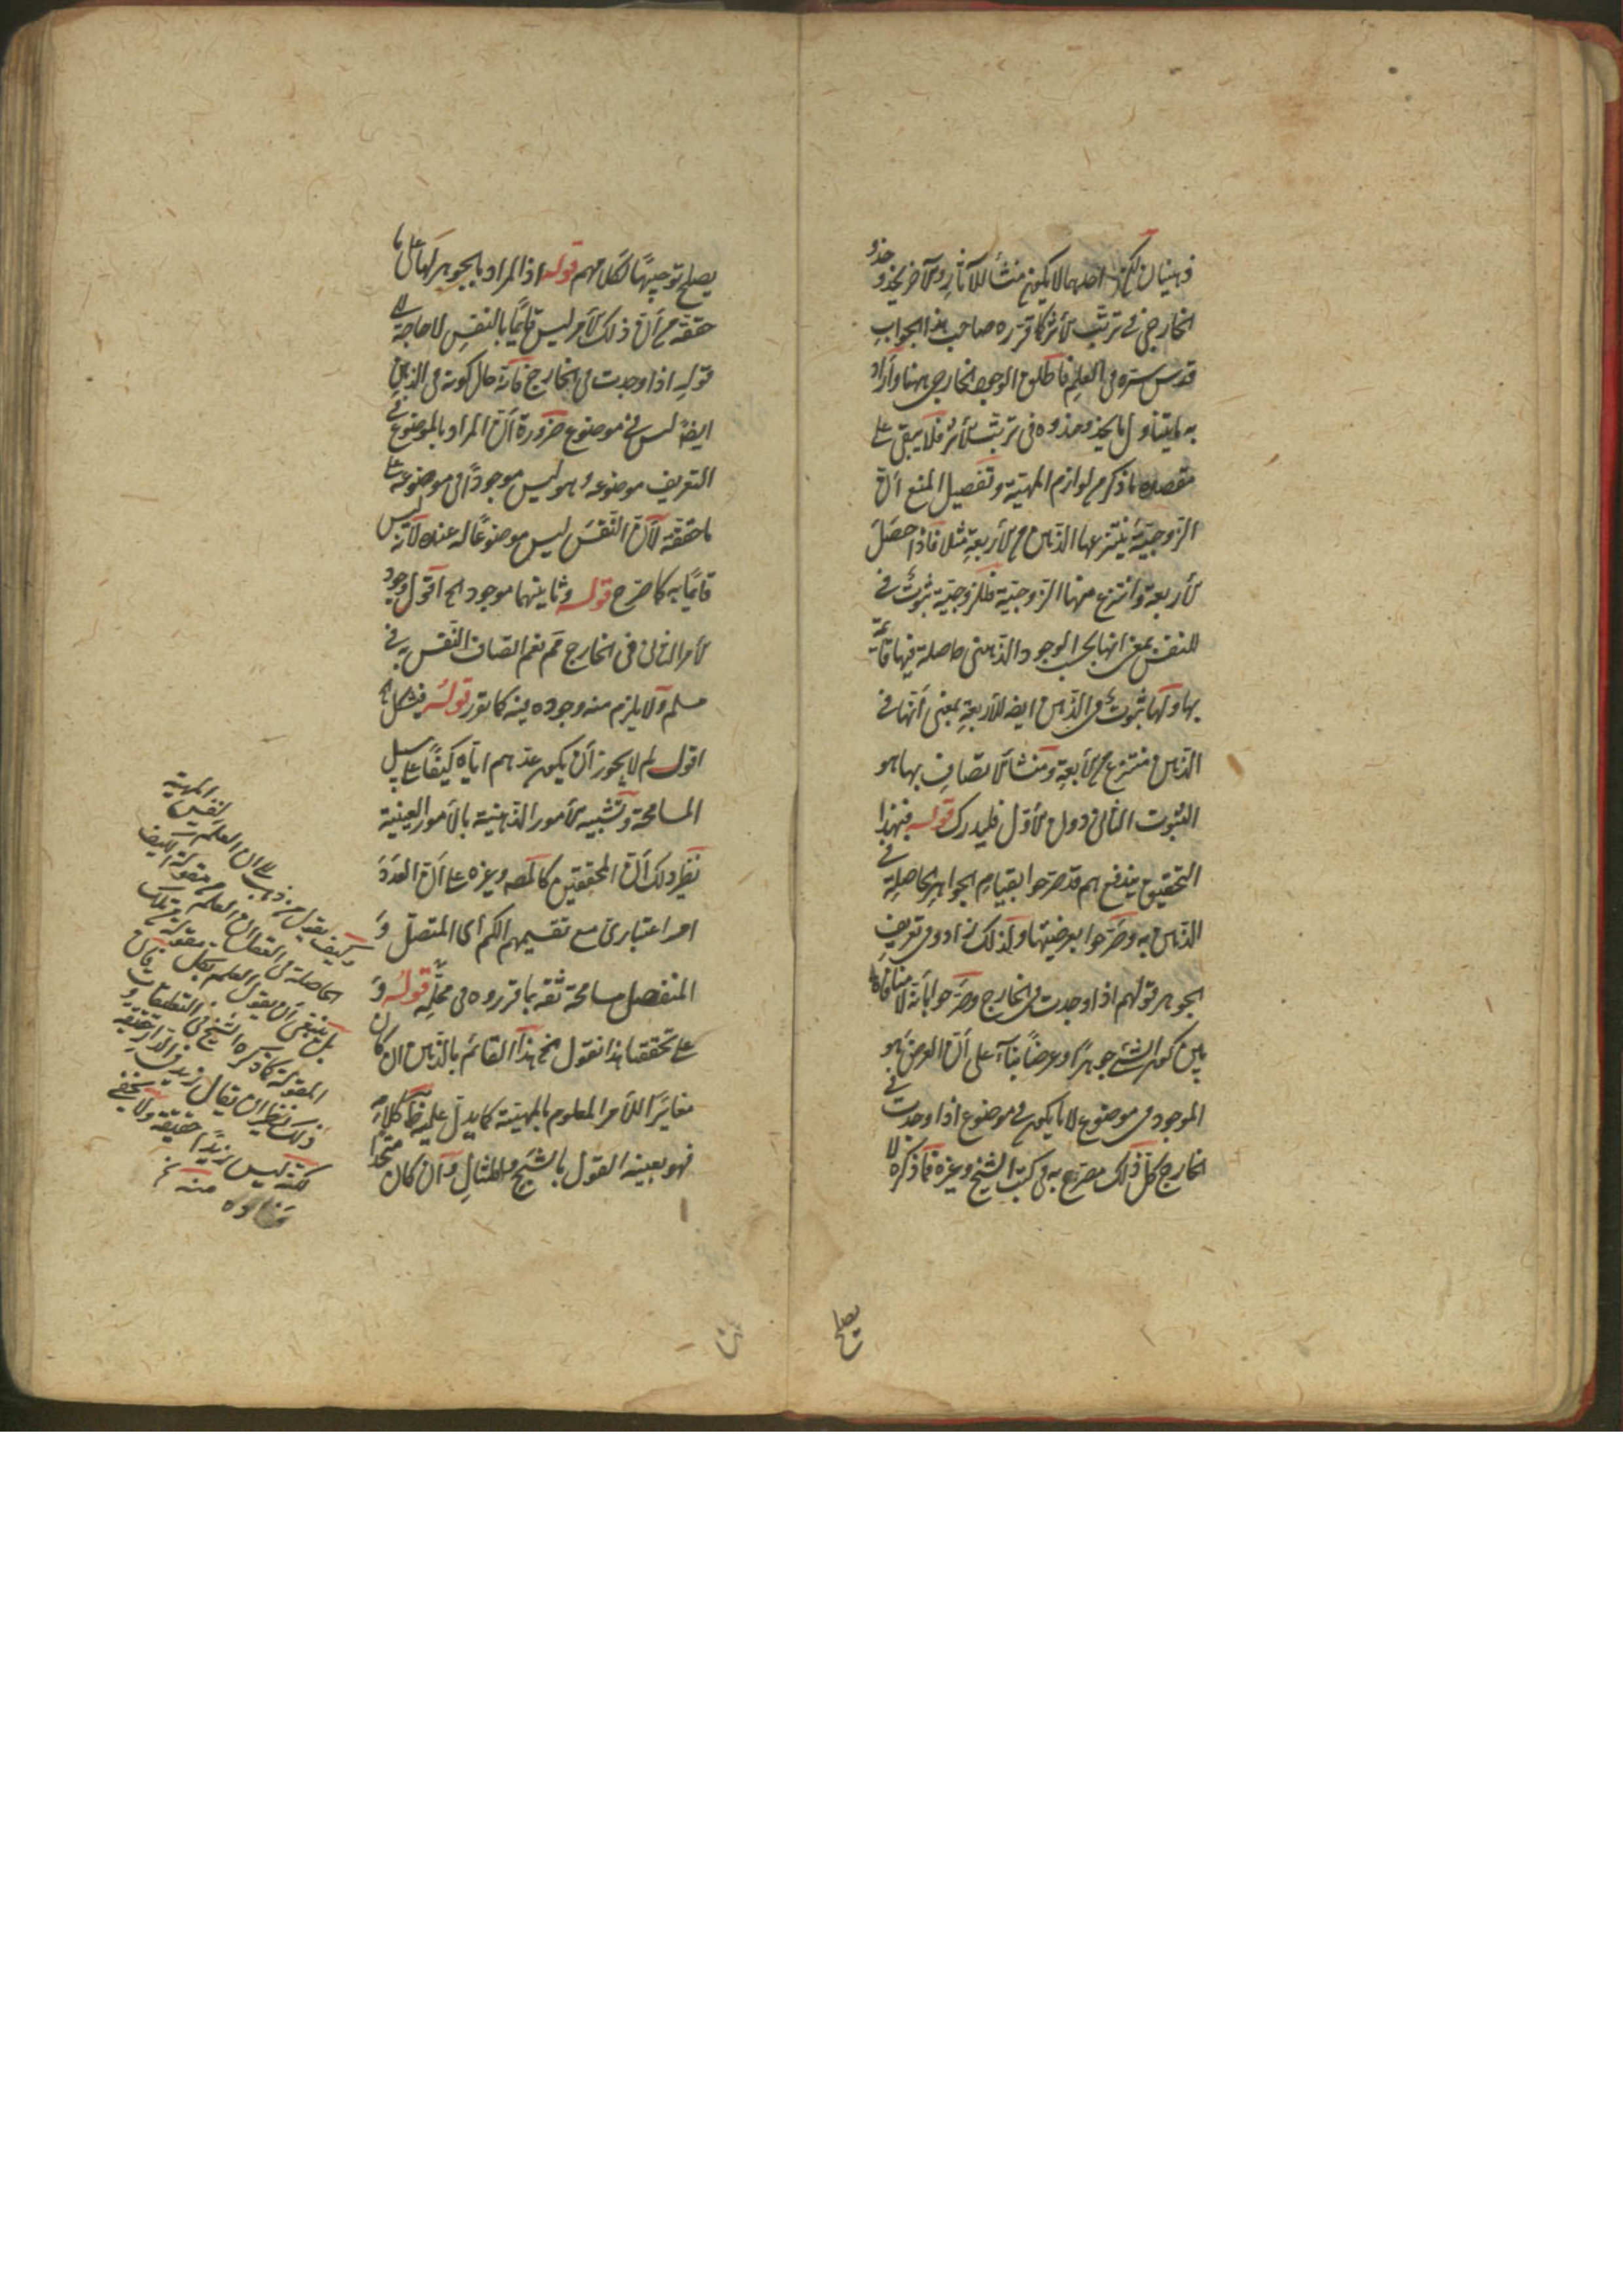 ذهنيان لكن احدهما لا يكون منشأ للآثار والآخر يحذو حذو
الخارجى فى ترتب الأثر كما قرره صاحب هذا الجواب
قدس سره فى العلم فاطلق الوجود الخارجى ههنا وأراد
به ما يتناول ما يحذو حذوه فى ترتب الأثر فلا يبقى على
مقصده ما ذكر من لوازم المهية وتفصيل المنع أن
الزوجية ينتزعها الذهن من الأربعة مثلا فاذا حصل
الأربعة وانتزع منها الزوجية فللزوجية ثبوت فى
للنفس بمعنى انها بحسب الوجود الذهنى حاصلة فيها قائمة
بها ولها ثبوت فى الذهن ايضا للأربعة بمعنى أنها فى
الذهن منتزع من الأربعة ومنشأ لاتصاف بها هو
الثبوت الثانى دون الأول فليدرك قوله فبهذا
التحقيق يندفع هم قد صرحوا بقيام الجواهر الحاصلة فى
الذهن به وصرحوا بعرضيتها ولذلك زادوا فى تعريف
الجوهر قولهم اذا وجدت فى الخارج وصرحوا بأنه لا منافاة
بين كون الشئ جوهرًا وعرضًا بناءً على أن العرض هو
الموجود فى موضوع لا ما يكون فى موضوع اذا وجدت فى
الخارج كل ذلك مصرح به فى كتب الشيخ وغيره فما ذكره لا
يصلح
يصلح توجيهًا لكلامهم قوله اذ المراد بالجوهر لها على ما
حققه من أن ذلك الأمر ليس قائمًا بالنفس لا حاجة الى
قوله اذا وجدت فى الخارج فانه حال كونه فى الذهن
ايضًا ليس فى موضوع ضرورة أن المراد بالموضوع فى
التعريف موضوعه وهو ليس موجودًا فى موضوعه على
ما حققه لأن النفس ليس موضوعًا له عنده لأنه ليس
قائمًا به كما صرح قوله وثانيتهما موجود الخ اقول وجود
الأمر الثانى فى الخارج مم نعم اتصاف النفس به فى
مسلم ولا يلزم منه وجوده فيه كما تقرر قوله فيشكل الخ
اقول لم لا يجوز أن يكون عدهم اياه كيفًا على سبيل
المسامحة وتشبيه الأمور الذهنية بالأمور العينية
نظير ذلك أن المحققين كالمص وغيره على أن العدد
امر اعتبارى مع تقسيمهم الكم أى المتصل و
المنفصل مسامحة ثقة بما قرروه فى محله قوله و
على تحققنا هذا نقول نمنع هذا القائم بالذهن ان كان
مغايرًا للأمر المعلوم بالمهية كما يدل عليه ظ كلامه
فهو بعينه القول بالشبح والمثال وان كان متحدا
وكيف يقول من ذهب الى ان العلم نفس المهية
الحاصلة فى العقل ان العلم من مقولة الكيف
بل ينبغى أن يقول العلم بكل مقولة من تلك
المقولة كما ذكره الشيخ فى التعليقات و
ذلك نظير ان يقال زيد فى الدار حقيقة
لكنه ليس زيدًا حقيقة ولا يخفى
فساده منه